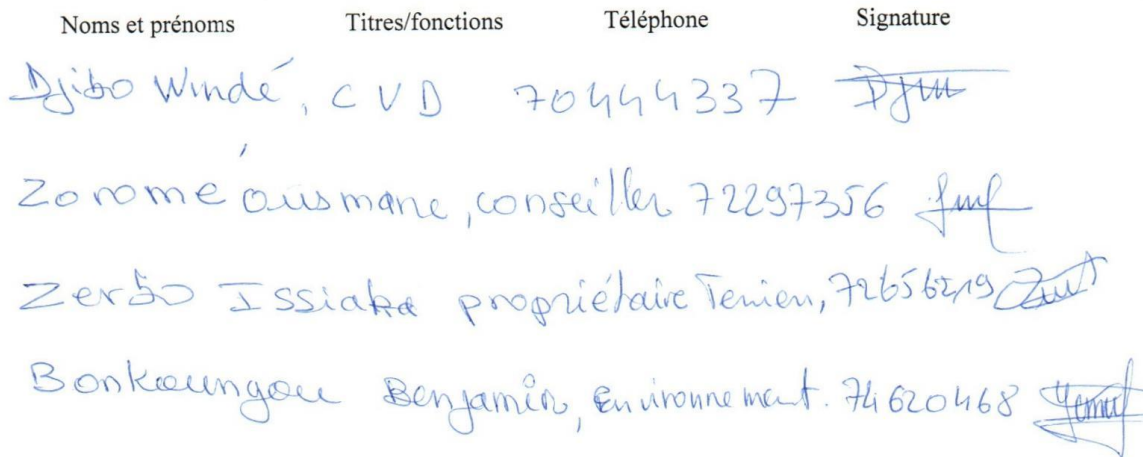 Noms et prénoms Titres/fonctions Téléphone Signature
Djibo Windé, CVD 70444337
Zoromé Ousmane, conseiller 72297356
Zerbo Issiaka propriétaire Terrien, 72656219
Bonkoungou Benjamin, Environnement. 74620468